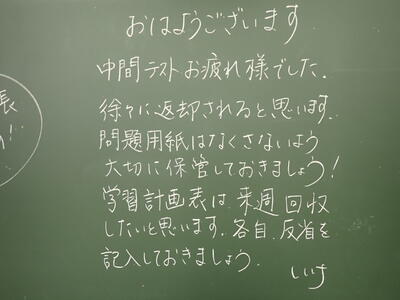 おはようございます
中間テストお疲れ様でした.
徐々に返却されると思います.
問題用紙はなくさないよう
大切に保管しておきましょう!
学習計画表は、来週回収
したいと思います. 各自、反省を
記入しておきましょう.